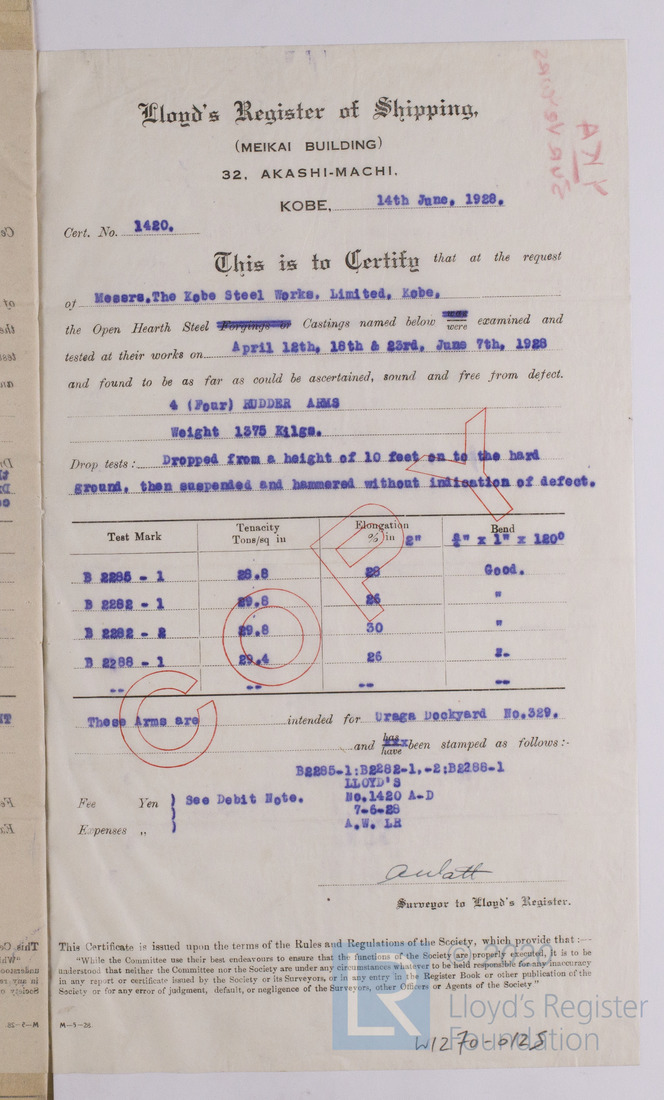 Lloyd's Register of Shipping,
(MEIKAI BUILDING)
32, AKASHI-MACHI.
KOBE, 14th June, 1928.
Cert. No. 1420.
This is to Certify that at the request
of Messrs.The Kobe Steel Works, Limited, Kobe,
the Open Hearth Steel Forgings or Castings named below was were examined and
tested at their works on April 12th, 18th & 23rd, June 7th, 1928
and found to be as far as could be ascertained, sound and free from defect.
4 (Four) RUDDER ARMS
Weight 1375 Kilgs.
Drop tests: Dropped from a height of 10 feet on to the hard
ground, then suspended and hammered without indication of defect.
Test Mark Tenacity Tons/sq in Elongation % in 2" Bend ¾" x 1" x 120°
B 2285 - 1 28.8 28 Good.
B 2282 - 1 29.8 26 "
B 2282 - 2 29.8 30 "
B 2288 - 1 29.4 26 "-
-- -- -- --
COPY
These Arms are intended for Uraga Dockyard No.329.
and has have been stamped as follows:-
B2285-1:B2282-1,-2:B2288-1
LLOYD'S
Fee Yen } See Debit Note. No.1420 A-D
7-6-28
Expenses ,, A.W. LR
A Watt
Surveyor to Lloyd's Register.
This Certificate is issued upon the terms of the Rules and Regulations of the Society, which provide that :—
"While the Committee use their best endeavours to ensure that the functions of the Society are properly executed, it is to be
understood that neither the Committee nor the Society are under any circumstances whatever to be held responsible for any inaccuracy
in any report or certificate issued by the Society or its Surveyors, or in any entry in the Register Book or other publication of the
Society or for any error of judgment, default, or negligence of the Surveyors, other Officers or Agents of the Society"
M—5—28.
© 2020
LR Lloyd's Register
Foundation
W1270-0125